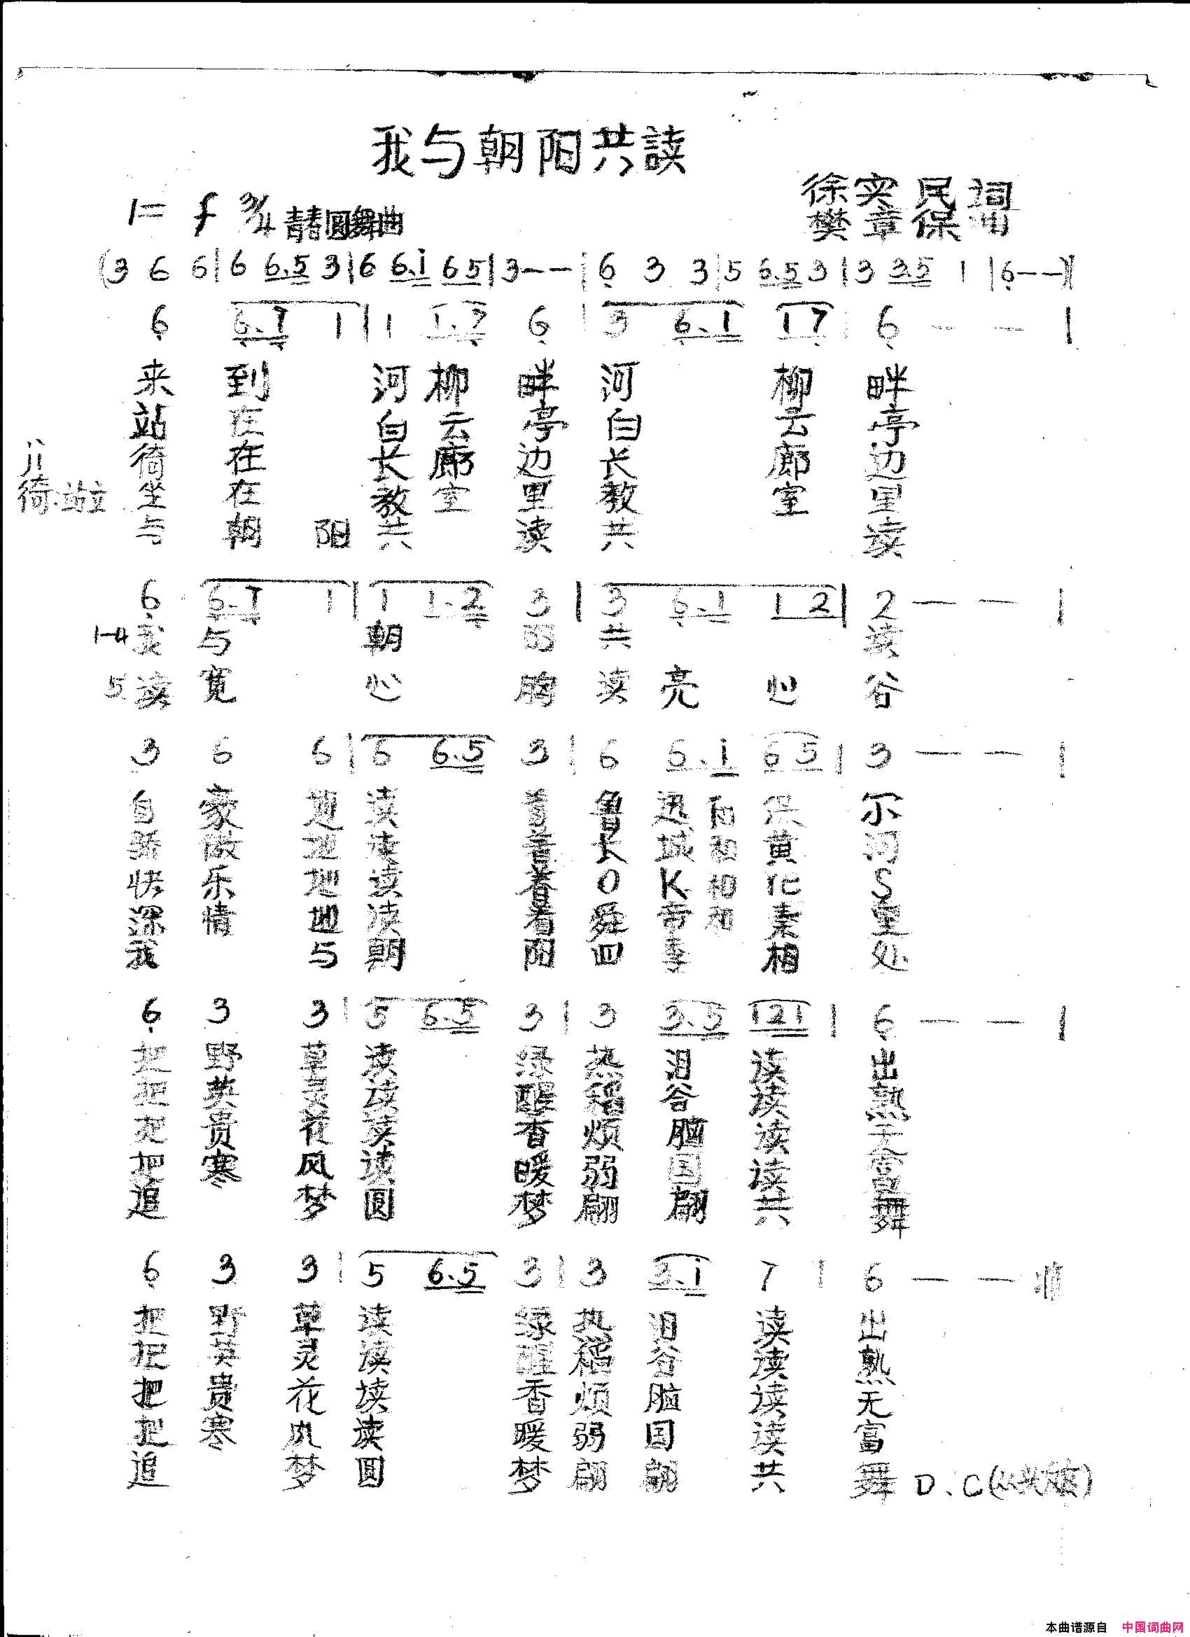 我与朝阳共読
徐实民词
樊章保曲
1= f 3/4 青春圆舞曲
(3 6 6 | 6 6.5 3 | 6 6.i 65 | 3 - - | 6 3 3 | 5 6.5 3 | 3 3.5 1 | 6 - -)
6 6.7 1 | 1 1.7 6 | 3 6.1 17 | 6 - - |
来到河柳畔河柳畔
站在白云亭白云亭
徛在长廊边长廊边
坐在教室里教室里
与朝阳共读共读
徛:站立
6 6.7 1 | 1 1.2 3 | 3 6.1 12 | 2 - - |
1-4 我与朝阳共读
5. 读宽心胸读亮心谷
3 6 6 | 6 6.5 3 | 6 6.i 65 | 3 - - |
自豪地读着鲁迅和保尔
骄傲地读着长城和黄河
快乐地读着OK和化S
深情地读着舜帝和素里
我与朝阳四季相处
6 3 3 | 5 6.5 3 | 3 3.5 121 | 6 - - |
把野草读绿热泪读出
把英灵读醒稻谷读熟
把贵花读香烦脑读无
把寒风读暖弱国读富
追梦圆梦翩翩共舞
6 3 3 | 5 6.5 3 | 3 3.i 7 | 6 - -
把野草读绿热泪读出
把英灵读醒稻谷读熟
把贵花读香烦脑读无
把寒风读暖弱国读富
追梦圆梦翩翩共舞
D.C(从头反复)
本曲谱源自 中国词曲网